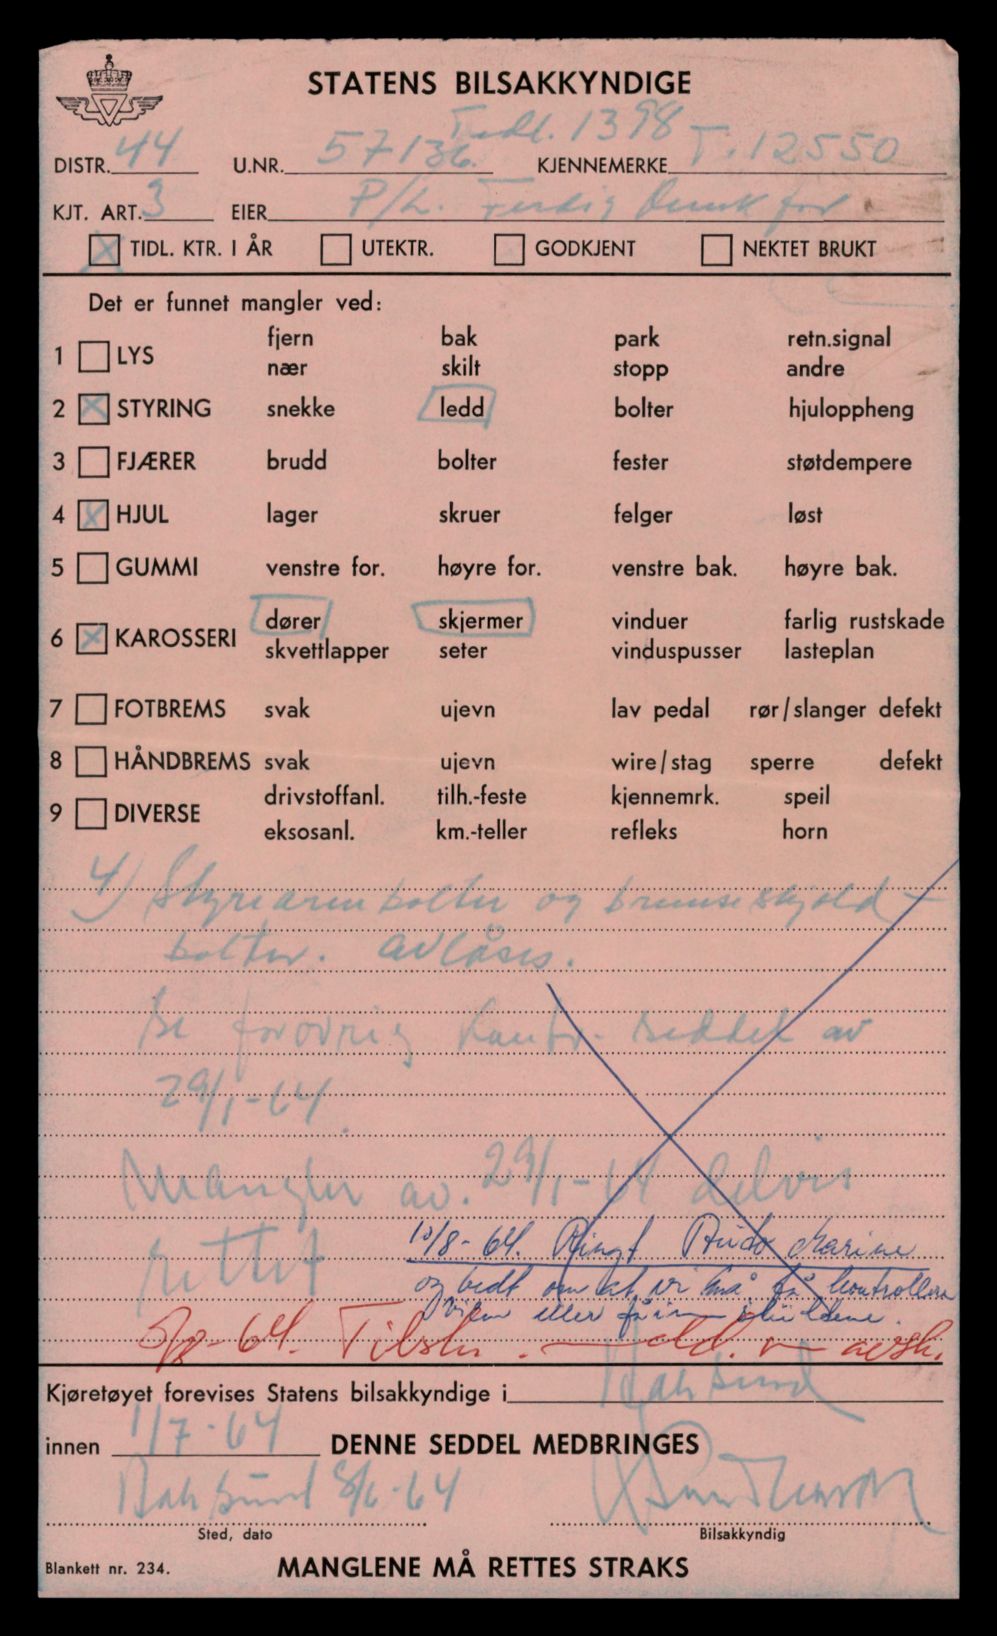 STATENS BILSAKKYNDIGE
Tidl. 1398
DISTR. 44 U.NR. 57136. KJENNEMERKE T-12550
KJT. ART. 3 EIER P/L.
TIDL. KTR. I ÅR UTEKTR. GODKJENT NEKTET BRUKT
Det er funnet mangler ved:
1 LYS fjern bak park retn.signal
nær skilt stopp andre
2 STYRING snekke ledd bolter hjuloppheng
3 FJÆRER brudd bolter fester støtdempere
4 HJUL lager skruer felger løst
5 GUMMI venstre for. høyre for. venstre bak. høyre bak.
6 KAROSSERI dører skjermer vinduer farlig rustskade
skvettlapper seter vinduspusser lasteplan
7 FOTBREMS svak ujevn lav pedal rør/slanger defekt
8 HÅNDBREMS svak ujevn wire/stag sperre defekt
9 DIVERSE drivstoffanl. tilh.-feste kjennemrk. speil
eksosanl. km.-teller refleks horn
4) Styrearm bolter og bremseskjold-
bolter. avlåses.
Se forøvrig kontr. seddel av
29/1-64.
Mangler av. 29/1-64 delvis
rettet
10/8-64. Ringt
og bedt om at vi må få kontrollere
eller få inn skiltene.
-64. Tilskr.
Kjøretøyet forevises Statens bilsakkyndige i Batsfjord
innen 1/7-64 DENNE SEDDEL MEDBRINGES
8/6-64
Sted, dato Bilsakkyndig
Blankett nr. 234. MANGLENE MÅ RETTES STRAKS